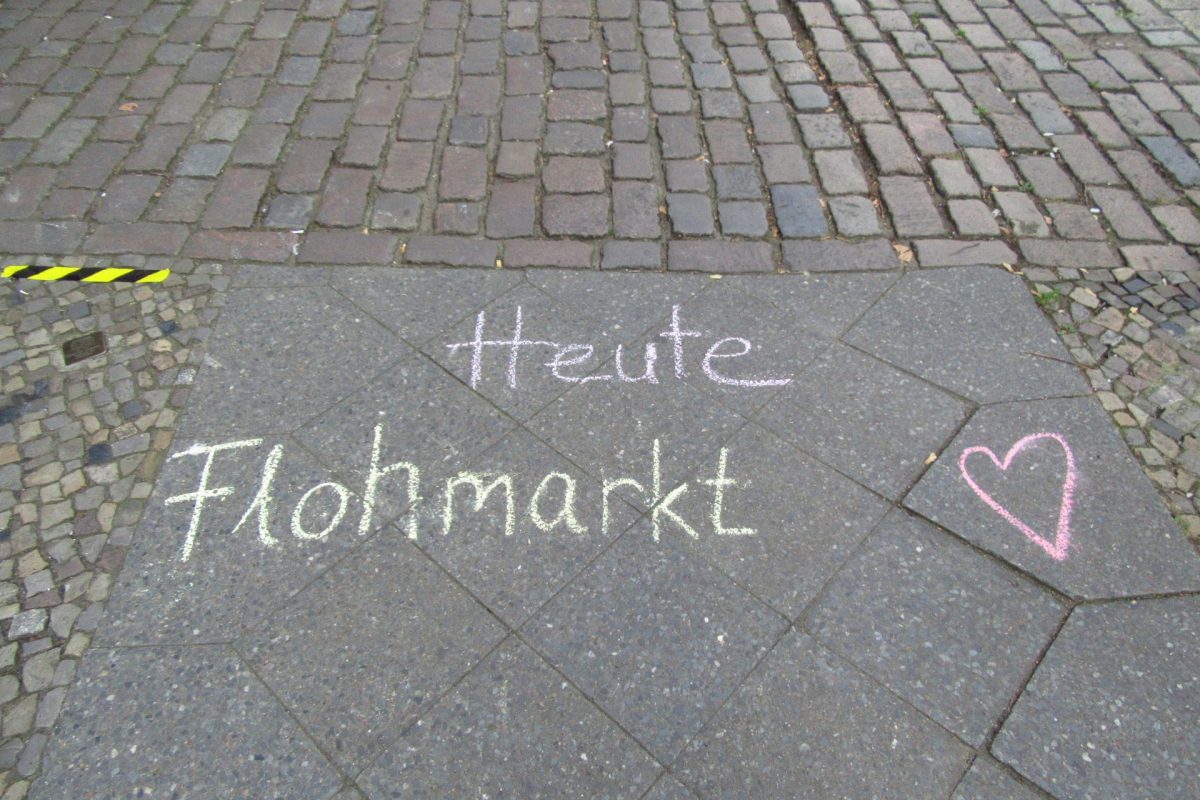 Heute
Flohmarkt